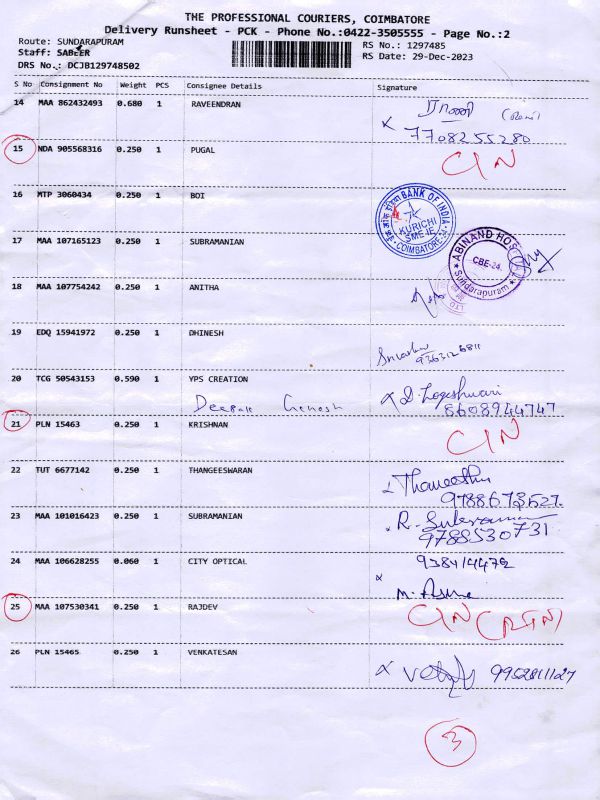 THE PROFESSIONAL COURIERS, COIMBATORE
Delivery Runsheet - PCK - Phone No.:0422-3505555 - Page No.:2
Route: SUNDARAPURAM
Staff: SABEER
DRS No.: DCJB129748502
RS No.: 1297485
RS Date: 29-Dec-2023
S No Consignment No Weight PCS Consignee Details Signature
14 MAA 862432493 0.680 1 RAVEENDRAN ராணி
x 7708255280
15 NDA 905568316 0.250 1 PUGAL CIN
16 MTP 3060434 0.250 1 BOI
BANK OF INDIA
KURICHI
SME IE
COIMBATORE-24
17 MAA 107165123 0.250 1 SUBRAMANIAN
ABINAND HOS
CBE-24.
Sundarapuram
18 MAA 107754242 0.250 1 ANITHA
19 EDQ 15941972 0.250 1 DHINESH
9363126811
20 TCG 50543153 0.590 1 YPS CREATION x D. Logeshwari
Deepak Ganesh 8608944747
21 PLN 15463 0.250 1 KRISHNAN CIN
22 TUT 6677142 0.250 1 THANGEESWARAN
9788673527.
23 MAA 101016423 0.250 1 SUBRAMANIAN R.
9788530731
24 MAA 106628255 0.060 1 CITY OPTICAL 938414472
x M.
25 MAA 107530341 0.250 1 RAJDEV CIN (RTN)
26 PLN 15465 0.250 1 VENKATESAN x 9952811127
3